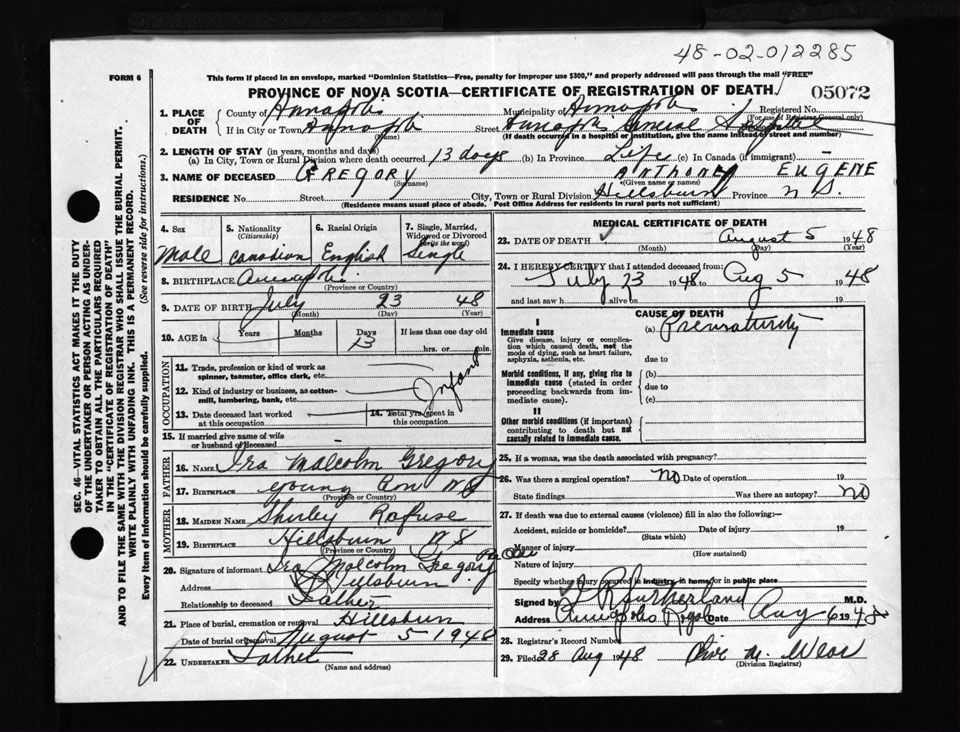 48-02-012285
FORM 6
This form if placed in an envelope, marked "Dominion Statistics—Free, penalty for improper use $300," and properly addressed will pass through the mail "FREE"
PROVINCE OF NOVA SCOTIA—CERTIFICATE OF REGISTRATION OF DEATH
05072
1. PLACE OF DEATH
County of Annapolis Municipality of Annapolis Registered No.
(For use of Registrar General only)
If in City or Town Annapolis Street Annapolis General Hospital
(If death occurred in a hospital or institution, give the name instead of street and number)
2. LENGTH OF STAY (in years, months and days)
(a) In City, Town or Rural Division where death occurred 13 days (b) In Province Life (c) In Canada (if immigrant) —
3. NAME OF DECEASED GREGORY ANTHONEY EUGENE
(Surname) (Given name or names)
RESIDENCE No. Street City, Town or Rural Division Hillsburn Province N S.
(Residence means usual place of abode. Post Office Address for residents in rural parts not sufficient)
4. Sex
Male
5. Nationality (Citizenship)
Canadian
6. Racial Origin
English
7. Single, Married, Widowed or Divorced (write the word)
Single
8. BIRTHPLACE Annapolis
(Province or Country)
9. DATE OF BIRTH July 23 48
(Month) (Day) (Year)
10. AGE in Years Months Days 13 If less than one day old
hrs. or min.
OCCUPATION
11. Trade, profession or kind of work as spinner, teamster, office clerk, etc.
12. Kind of industry or business, as cotton-mill, lumbering, bank, etc.
Infant
13. Date deceased last worked at this occupation
14. Total yrs. spent in this occupation
15. If married give name of wife or husband of deceased —
FATHER
16. NAME Ira Malcolm Gregory
17. BIRTHPLACE Young Cove N S
(Province or Country)
MOTHER
18. MAIDEN NAME Shirley Rafuse
19. BIRTHPLACE Hillsburn N S
(Province or Country)
20. Signature of informant Ira Malcolm Gregory
Address Hillsburn
Relationship to deceased Father
21. Place of burial, cremation or removal Hillsburn
Date of burial or removal August 5 1948
22. UNDERTAKER Father
(Name and address)
MEDICAL CERTIFICATE OF DEATH
23. DATE OF DEATH August 5 1948
(Month) (Day) (Year)
24. I HEREBY CERTIFY that I attended deceased from:
July 23 1948 to Aug 5 1948
and last saw h alive on 19
CAUSE OF DEATH
I
Immediate cause (a) Prematurity
Give disease, injury or complication which caused death, not the mode of dying, such as heart failure, asphyxia, asthenia, etc.
due to
Morbid conditions, if any, giving rise to immediate cause (stated in order proceeding backwards from immediate cause).
(b)
due to
(c)
II
Other morbid conditions (if important) contributing to death but not causally related to immediate cause.
25. If a woman, was the death associated with pregnancy?
26. Was there a surgical operation? No Date of operation 19
State findings Was there an autopsy? No
27. If death was due to external causes (violence) fill in also the following:—
Accident, suicide or homicide? Date of injury 19
(State which)
Manner of injury
(How sustained)
Nature of injury
Specify whether injury occurred in industry, in home or in public place
Signed by Sutherland M.D.
Address Annapolis Royal Date Aug 6 1948
28. Registrar's Record Number
29. Filed 28 Aug 1948 Olive M. Wear
(Division Registrar)
SEC. 46—VITAL STATISTICS ACT MAKES IT THE DUTY
OF THE UNDERTAKER OR PERSON ACTING AS UNDER-
TAKER TO OBTAIN ALL THE PARTICULARS REQUIRED
IN THE "CERTIFICATE OF REGISTRATION OF DEATH"
AND TO FILE THE SAME WITH THE DIVISION REGISTRAR WHO SHALL ISSUE THE BURIAL PERMIT.
WRITE PLAINLY WITH UNFADING INK. THIS IS A PERMANENT RECORD.
Every item of information should be carefully supplied. (See reverse side for instructions.)